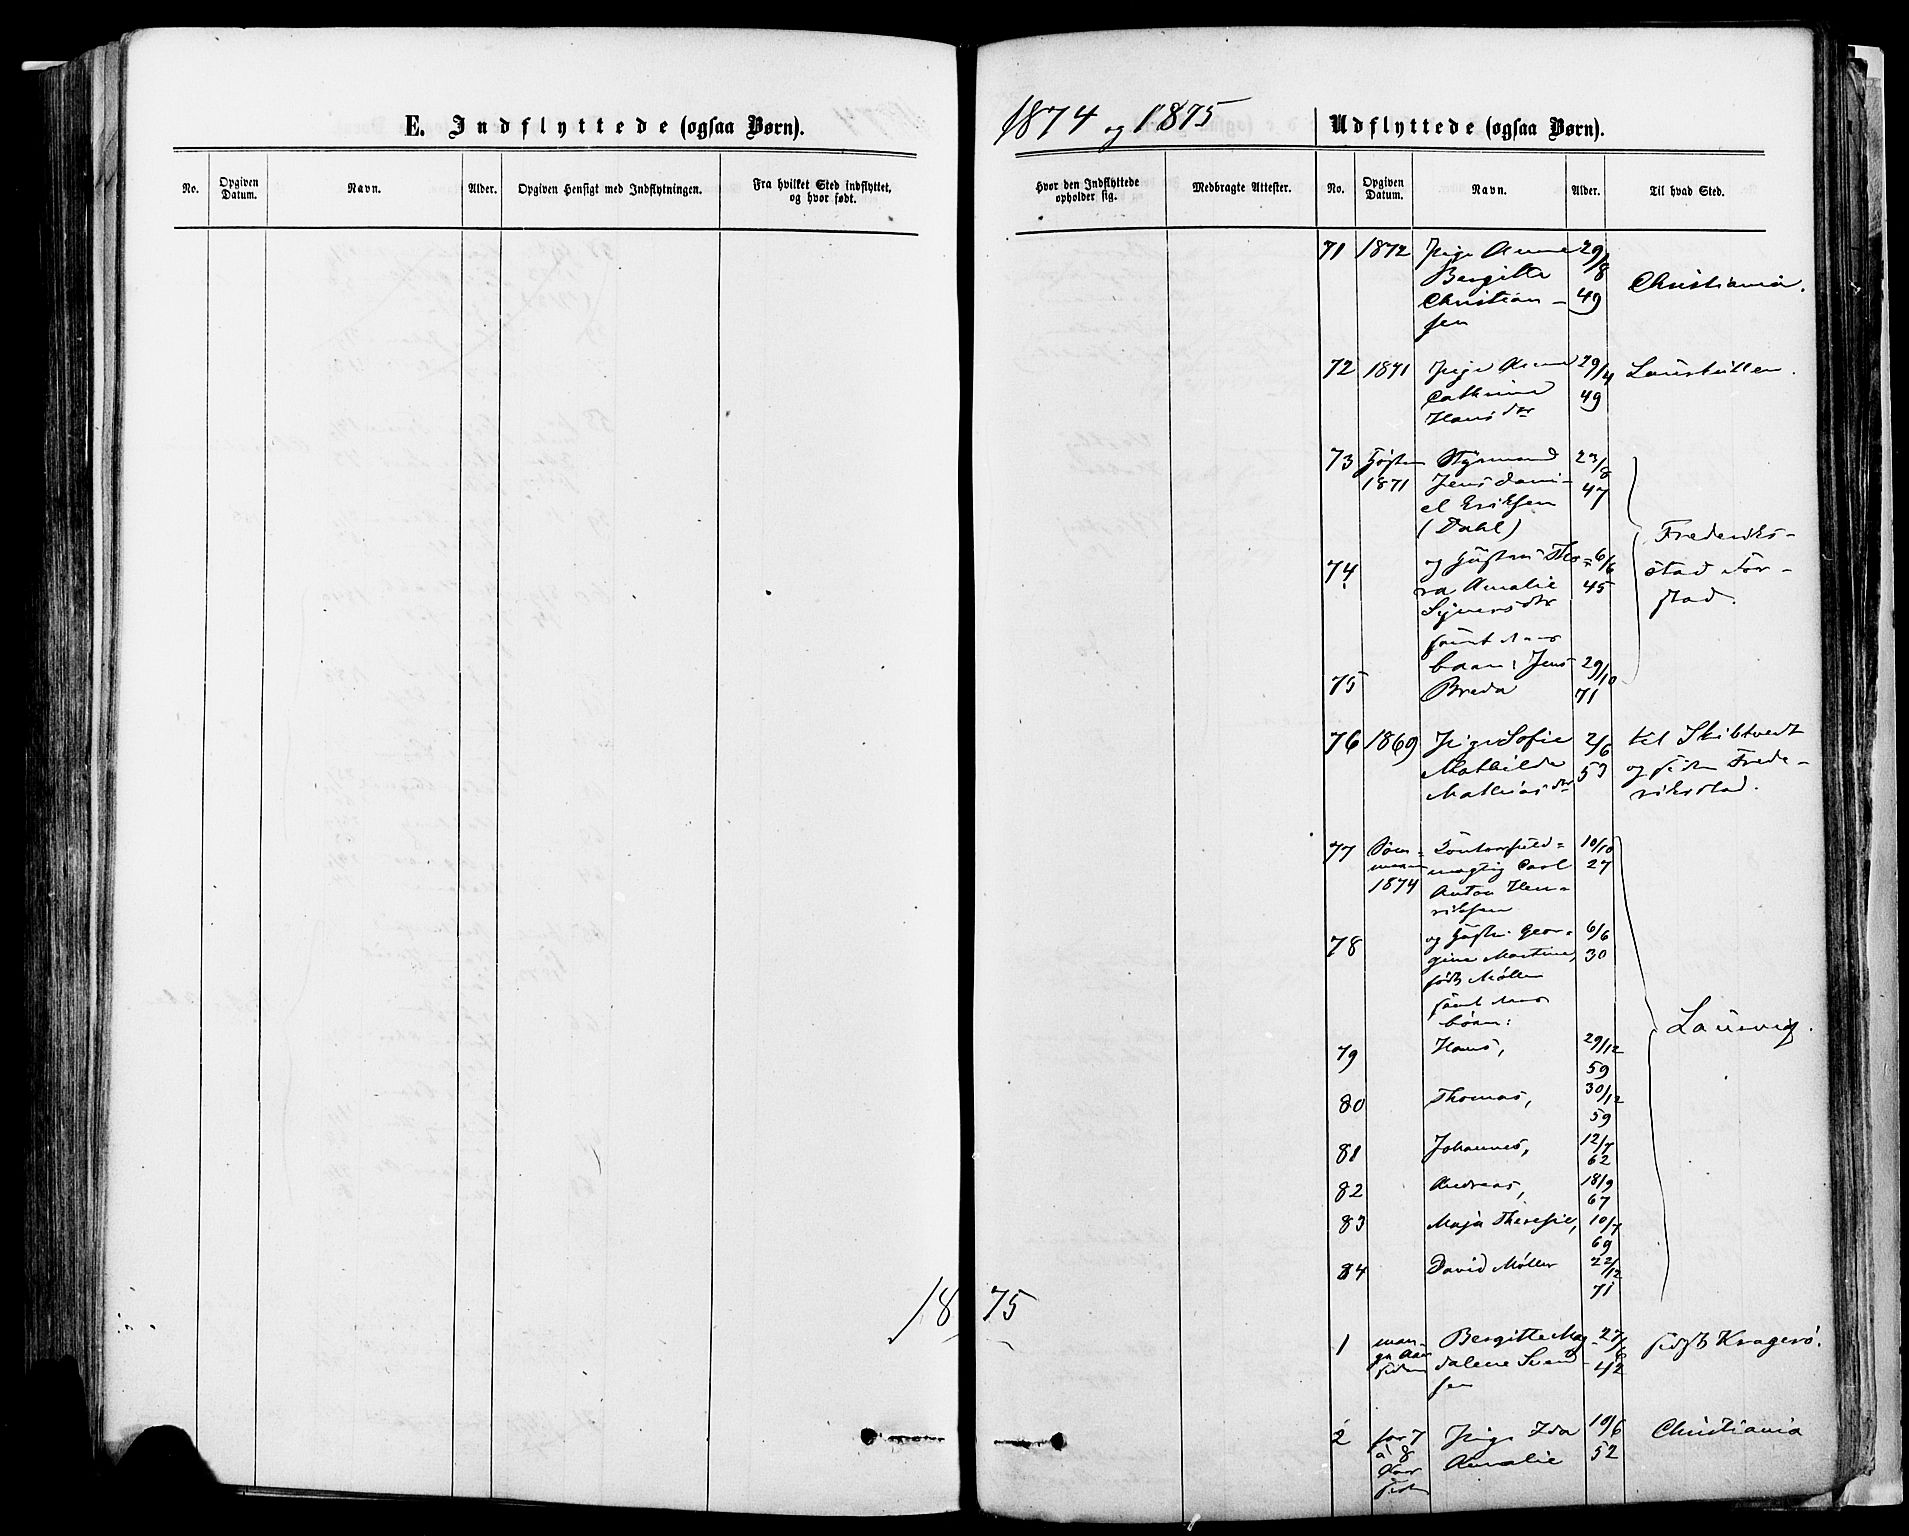 E. Indflyttede (ogsaa Børn).
1874 og 1875
Udflyttede (ogsaa Børn).
No.
Opgiven Datum.
Navn.
Alder.
Opgiven Hensigt med Indflytningen.
Fra hvilket Sted indflyttet, og hvor født.
Hvor den Indflyttede opholder sig.
Medbragte Attester.
No.
Opgiven Datum.
Navn.
Alder.
Til hvad Sted.
71 1872 Pige Anne 29/8
Bergitte
Christian- 49 Christiania.
sen
72 1871 Pige Anne 29/4
Cathrine 49
Hansdtr
73 Høsten Styrmand 23/8
1871 Jens Dani- 47
el Eriksen
(Dahl) Frederiks-
74 og Hustru Tho- 6/6 stad For-
ra Amalie 45 stad.
Syversdtr
samt
barn: Jens 29/10
75 Breda 71
76 1869 Pige Sofie 2/6 til Skibtvedt
Mathilde 53 og siden Frede-
Mathiasdtr rikstad.
77 Som- Contorfuld- 10/10
meren mægtig Carl 27
1874 Anton Hen-
riksen
78 og Hustr. Geor- 6/6
gine Martine, 30
født Møller
samt
børn:
Laurvig.
79 Hans, 29/12
59
80 Thomas, 30/12
59
81 Johannes, 12/7
62
82 Andreas, 18/9
67
83 Maja Theresie, 10/7
69
84 David Møller 22/12
71
1875
1 man- Bergitte Mag- 27/6 sidst Kragerø.
ge Aar dalene Svend- 42
siden sen
2 for 7 Pige Ida 19/6 Christiania
à 8 Amalie 52
Aar
siden